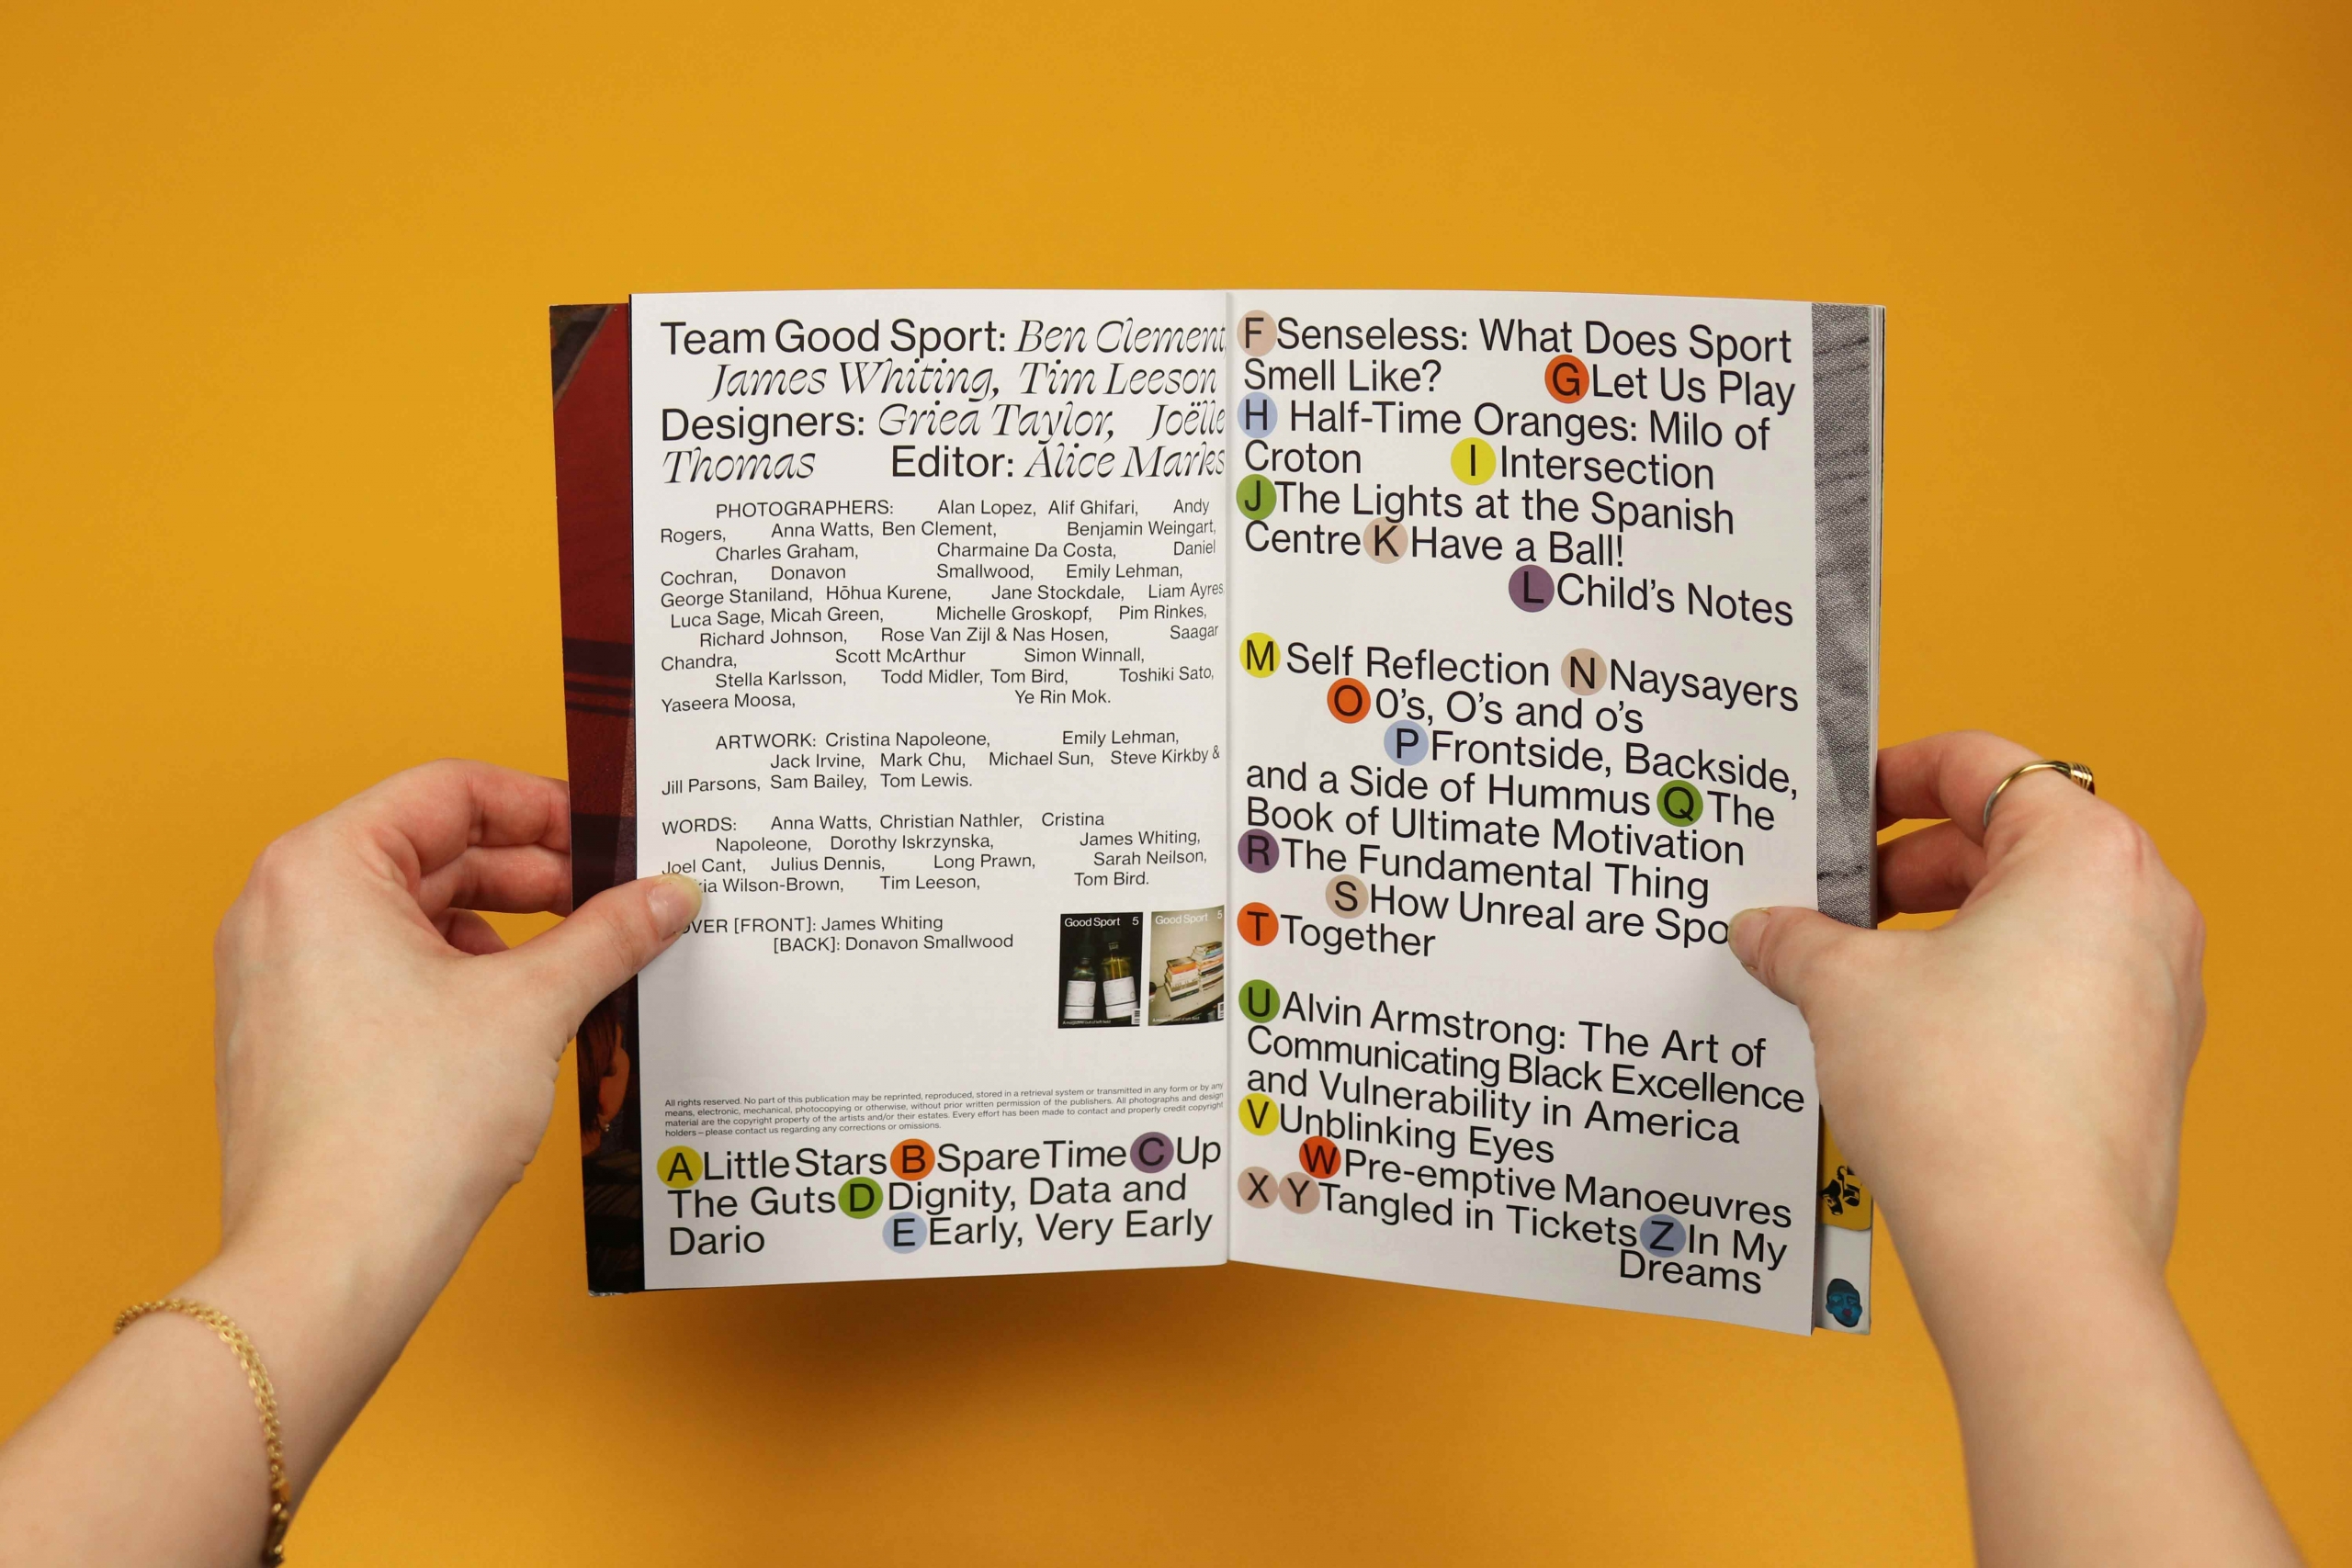 Team Good Sport: Ben Clement,
James Whiting, Tim Leeson
Designers: Griea Taylor, Joëlle
Thomas Editor: Alice Marks
PHOTOGRAPHERS: Alan Lopez, Alif Ghifari, Andy
Rogers, Anna Watts, Ben Clement, Benjamin Weingart,
Charles Graham, Charmaine Da Costa, Daniel
Cochran, Donavon Smallwood, Emily Lehman,
George Staniland, Hōhua Kurene, Jane Stockdale, Liam Ayres
Luca Sage, Micah Green, Michelle Groskopf, Pim Rinkes,
Richard Johnson, Rose Van Zijl & Nas Hosen, Saagar
Chandra, Scott McArthur Simon Winnall,
Stella Karlsson, Todd Midler, Tom Bird, Toshiki Sato,
Yaseera Moosa, Ye Rin Mok.
ARTWORK: Cristina Napoleone, Emily Lehman,
Jack Irvine, Mark Chu, Michael Sun, Steve Kirkby &
Jill Parsons, Sam Bailey, Tom Lewis.
WORDS: Anna Watts, Christian Nathler, Cristina
Napoleone, Dorothy Iskrzynska, James Whiting,
Joel Cant, Julius Dennis, Long Prawn, Sarah Neilson,
Wilson-Brown, Tim Leeson, Tom Bird.
[FRONT]: James Whiting
[BACK]: Donavon Smallwood
Good Sport 5
Good Sport 5
All rights reserved. No part of this publication may be reprinted, reproduced, stored in a retrieval system or transmitted in any form or by any
means, electronic, mechanical, photocopying or otherwise, without prior written permission of the publishers. All photographs and design
material are the copyright property of the artists and/or their estates. Every effort has been made to contact and properly credit copyright
holders – please contact us regarding any corrections or omissions.
A Little Stars B Spare Time C Up
The Guts D Dignity, Data and
Dario E Early, Very Early
F Senseless: What Does Sport
Smell Like? G Let Us Play
H Half-Time Oranges: Milo of
Croton I Intersection
J The Lights at the Spanish
Centre K Have a Ball!
L Child's Notes
M Self Reflection N Naysayers
O 0's, O's and o's
P Frontside, Backside,
and a Side of Hummus Q The
Book of Ultimate Motivation
R The Fundamental Thing
S How Unreal are
T Together
U Alvin Armstrong: The Art of
Communicating Black Excellence
and Vulnerability in America
V Unblinking Eyes
W Pre-emptive Manoeuvres
X Y Tangled in Tickets Z In My
Dreams